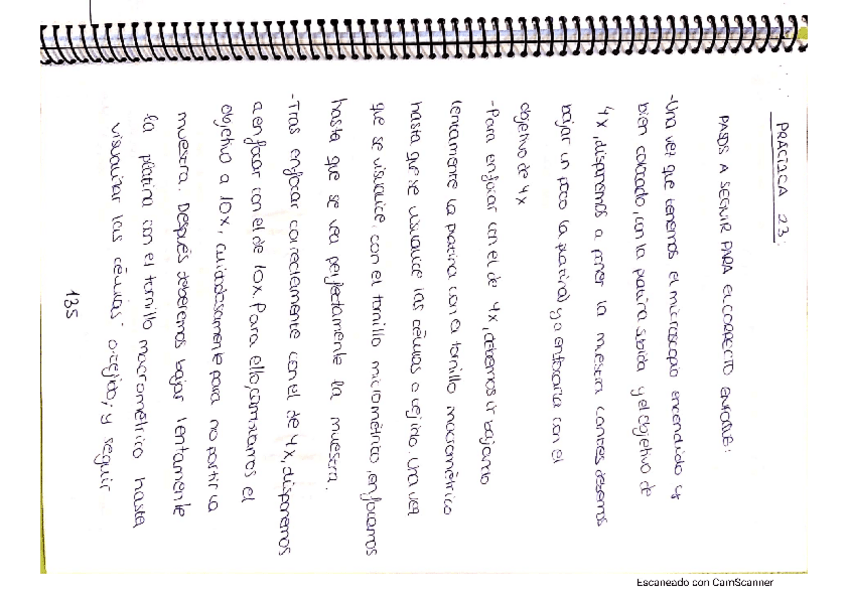 PRÁCTICA 23:
PASOS A SEGUIR PARA EL CORRECTO ENFOQUE:
-Una vez que tenemos el microscopio encendido y
bien colocado, con la platina subida y el objetivo de
4x, disponemos a poner la muestra (antes debemos
bajar un poco la platina) y a enfocarla con el
objetivo de 4x
-Para enfocar con el de 4x, debemos ir bajando
lentamente la platina con el tornillo macrométrico
hasta que se visualice las células o tejido. Una vez
que se visualice, con el tornillo micrométrico, enfocamos
hasta que se vea perfectamente la muestra.
-Tras enfocar correctamente con el de 4x, disponemos
a enfocar con el de 10x. Para ello, cambiamos el
objetivo a 10x, cuidadosamente para no partir la
muestra. Después deberemos bajar lentamente
la platina con el tornillo macrométrico hasta
visualizar las células o tejido, y seguir
135
Escaneado con CamScanner